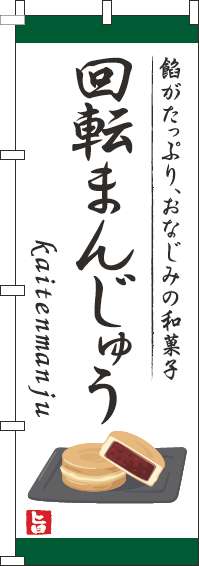 餡がたっぷり、おなじみの和菓子
回転まんじゅう
kaitenmanju
旨